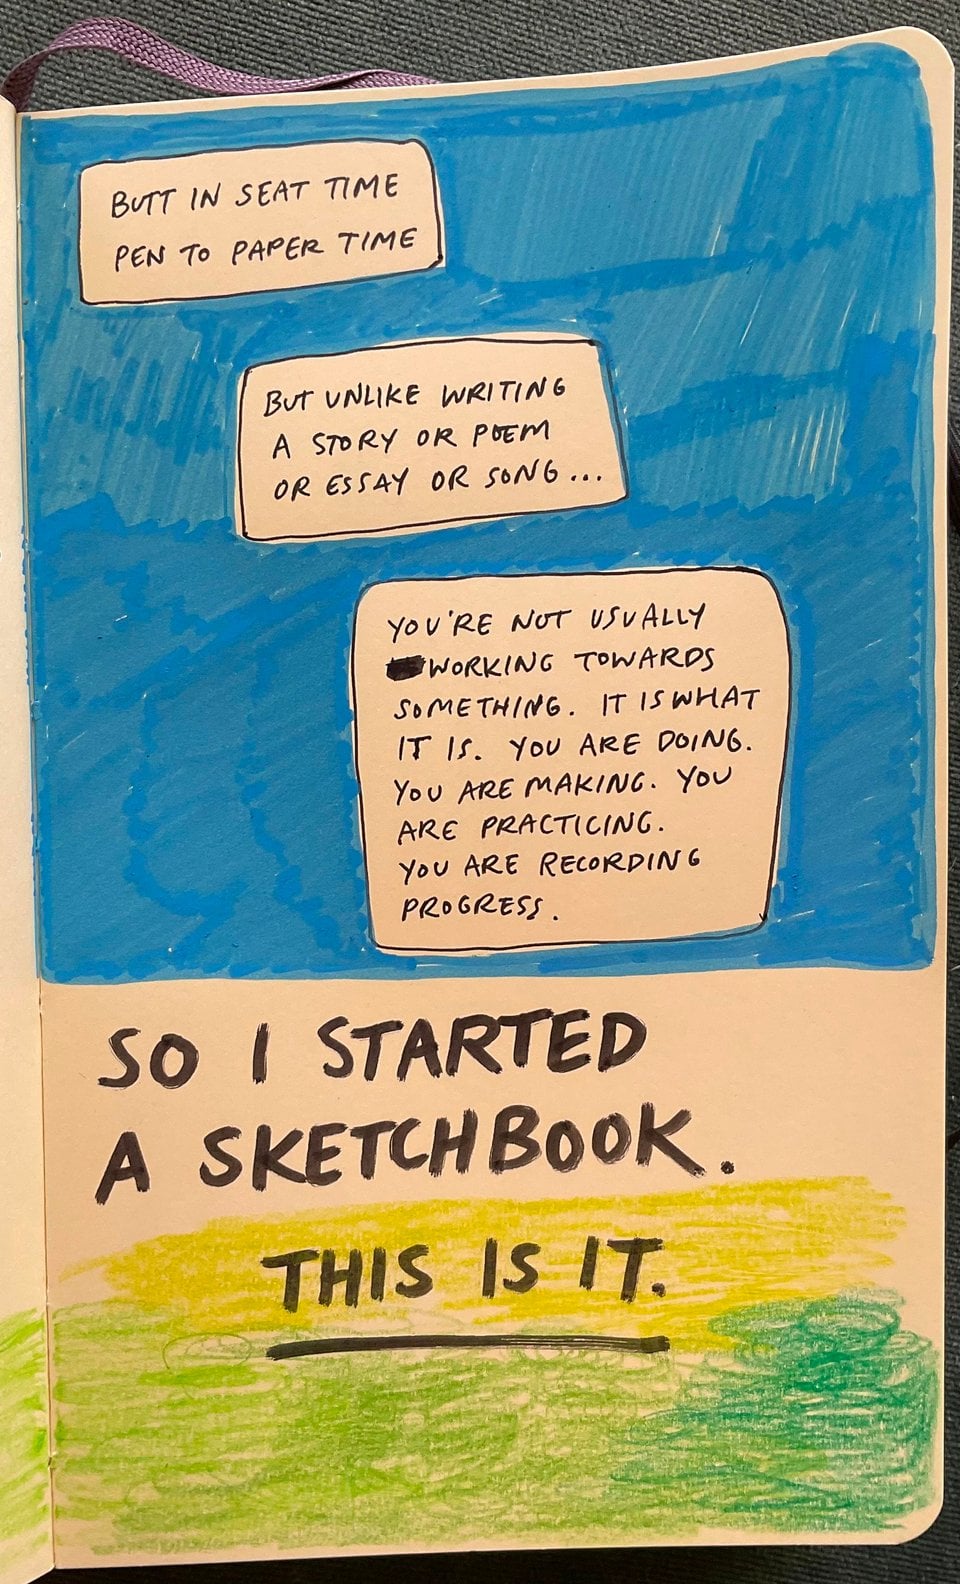 BUTT IN SEAT TIME
PEN TO PAPER TIME
BUT UNLIKE WRITING
A STORY OR POEM
OR ESSAY OR SONG...
YOU'RE NOT USUALLY
WORKING TOWARDS
SOMETHING. IT IS WHAT
IT IS. YOU ARE DOING.
YOU ARE MAKING. YOU
ARE PRACTICING.
YOU ARE RECORDING
PROGRESS.
SO I STARTED
A SKETCHBOOK.
THIS IS IT.